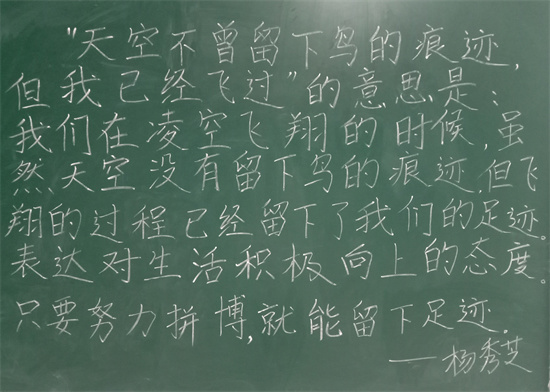 "天空不曾留下鸟的痕迹,
但我已经飞过"的意思是:
我们在凌空飞翔的时候,虽
然天空没有留下鸟的痕迹,但飞
翔的过程已经留下了我们的足迹。
表达对生活积极向上的态度。
只要努力拼博,就能留下足迹。
——杨秀芝